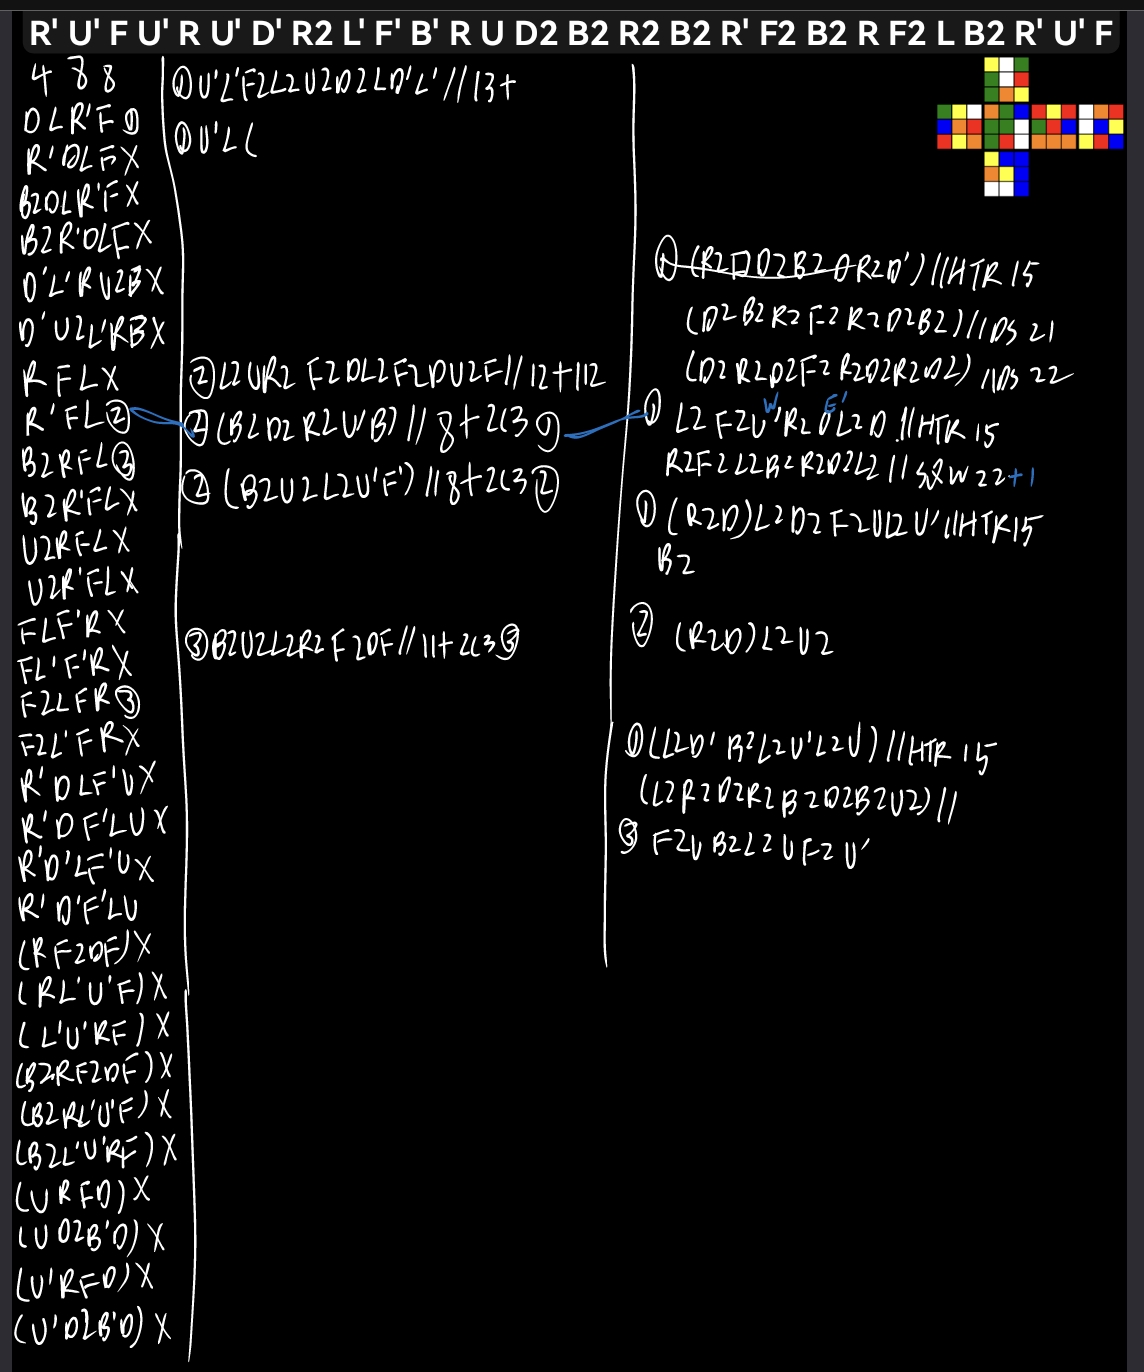 R' U' F U' R U' D' R2 L' F' B' R U D2 B2 R2 B2 R' F2 B2 R F2 L B2 R' U' F
4 8 8
DLR'F ①
R'DLFX
B2DLR'FX
B2R'DLFX
D'L'RU2BX
D'U2L'RBX
RFLX
R'FL②
B2RFL③
B2R'FLX
U2RFLX
U2R'FLX
FLF'RX
FL'F'RX
F2LFR③
F2L'FRX
R'DLF'UX
R'DF'LUX
R'D'LF'UX
R'D'F'LU
(RF2DF)X
(RL'U'F)X
(L'U'RF)X
(B2RF2DF)X
(B2RL'U'F)X
(B2L'U'RF)X
(URFD)X
(UD2B'D)X
(U'RFD)X
(U'D2B'D)X
①U'L'F2L2U2D2LD'L'//13+
①U'L(
②L2UR2F2DL2F2DU2F//12+112
②(B2D2R2U'B)//8+2c3①
②(B2U2L2U'F')//8+2c3②
③B2U2L2R2F2DF//11+2c3③
D2B2 R2D')//HTR 15
(D2B2R2F2R2D2B2)//DS 21
(D2R2D2F2R2D2R2D2)//DS 22
W E'
① L2F2U'R2 L2D//HTR 15
R2F2L2B2R2D2L2// 22+1
①(R2D)L2D2F2UL2U'//HTR15
B2
② (R2D)L2U2
①(L2D'B2L2U'L2U)//HTR 15
(L2R2D2R2B2D2B2U2)//
③ F2UB2L2UF2U'